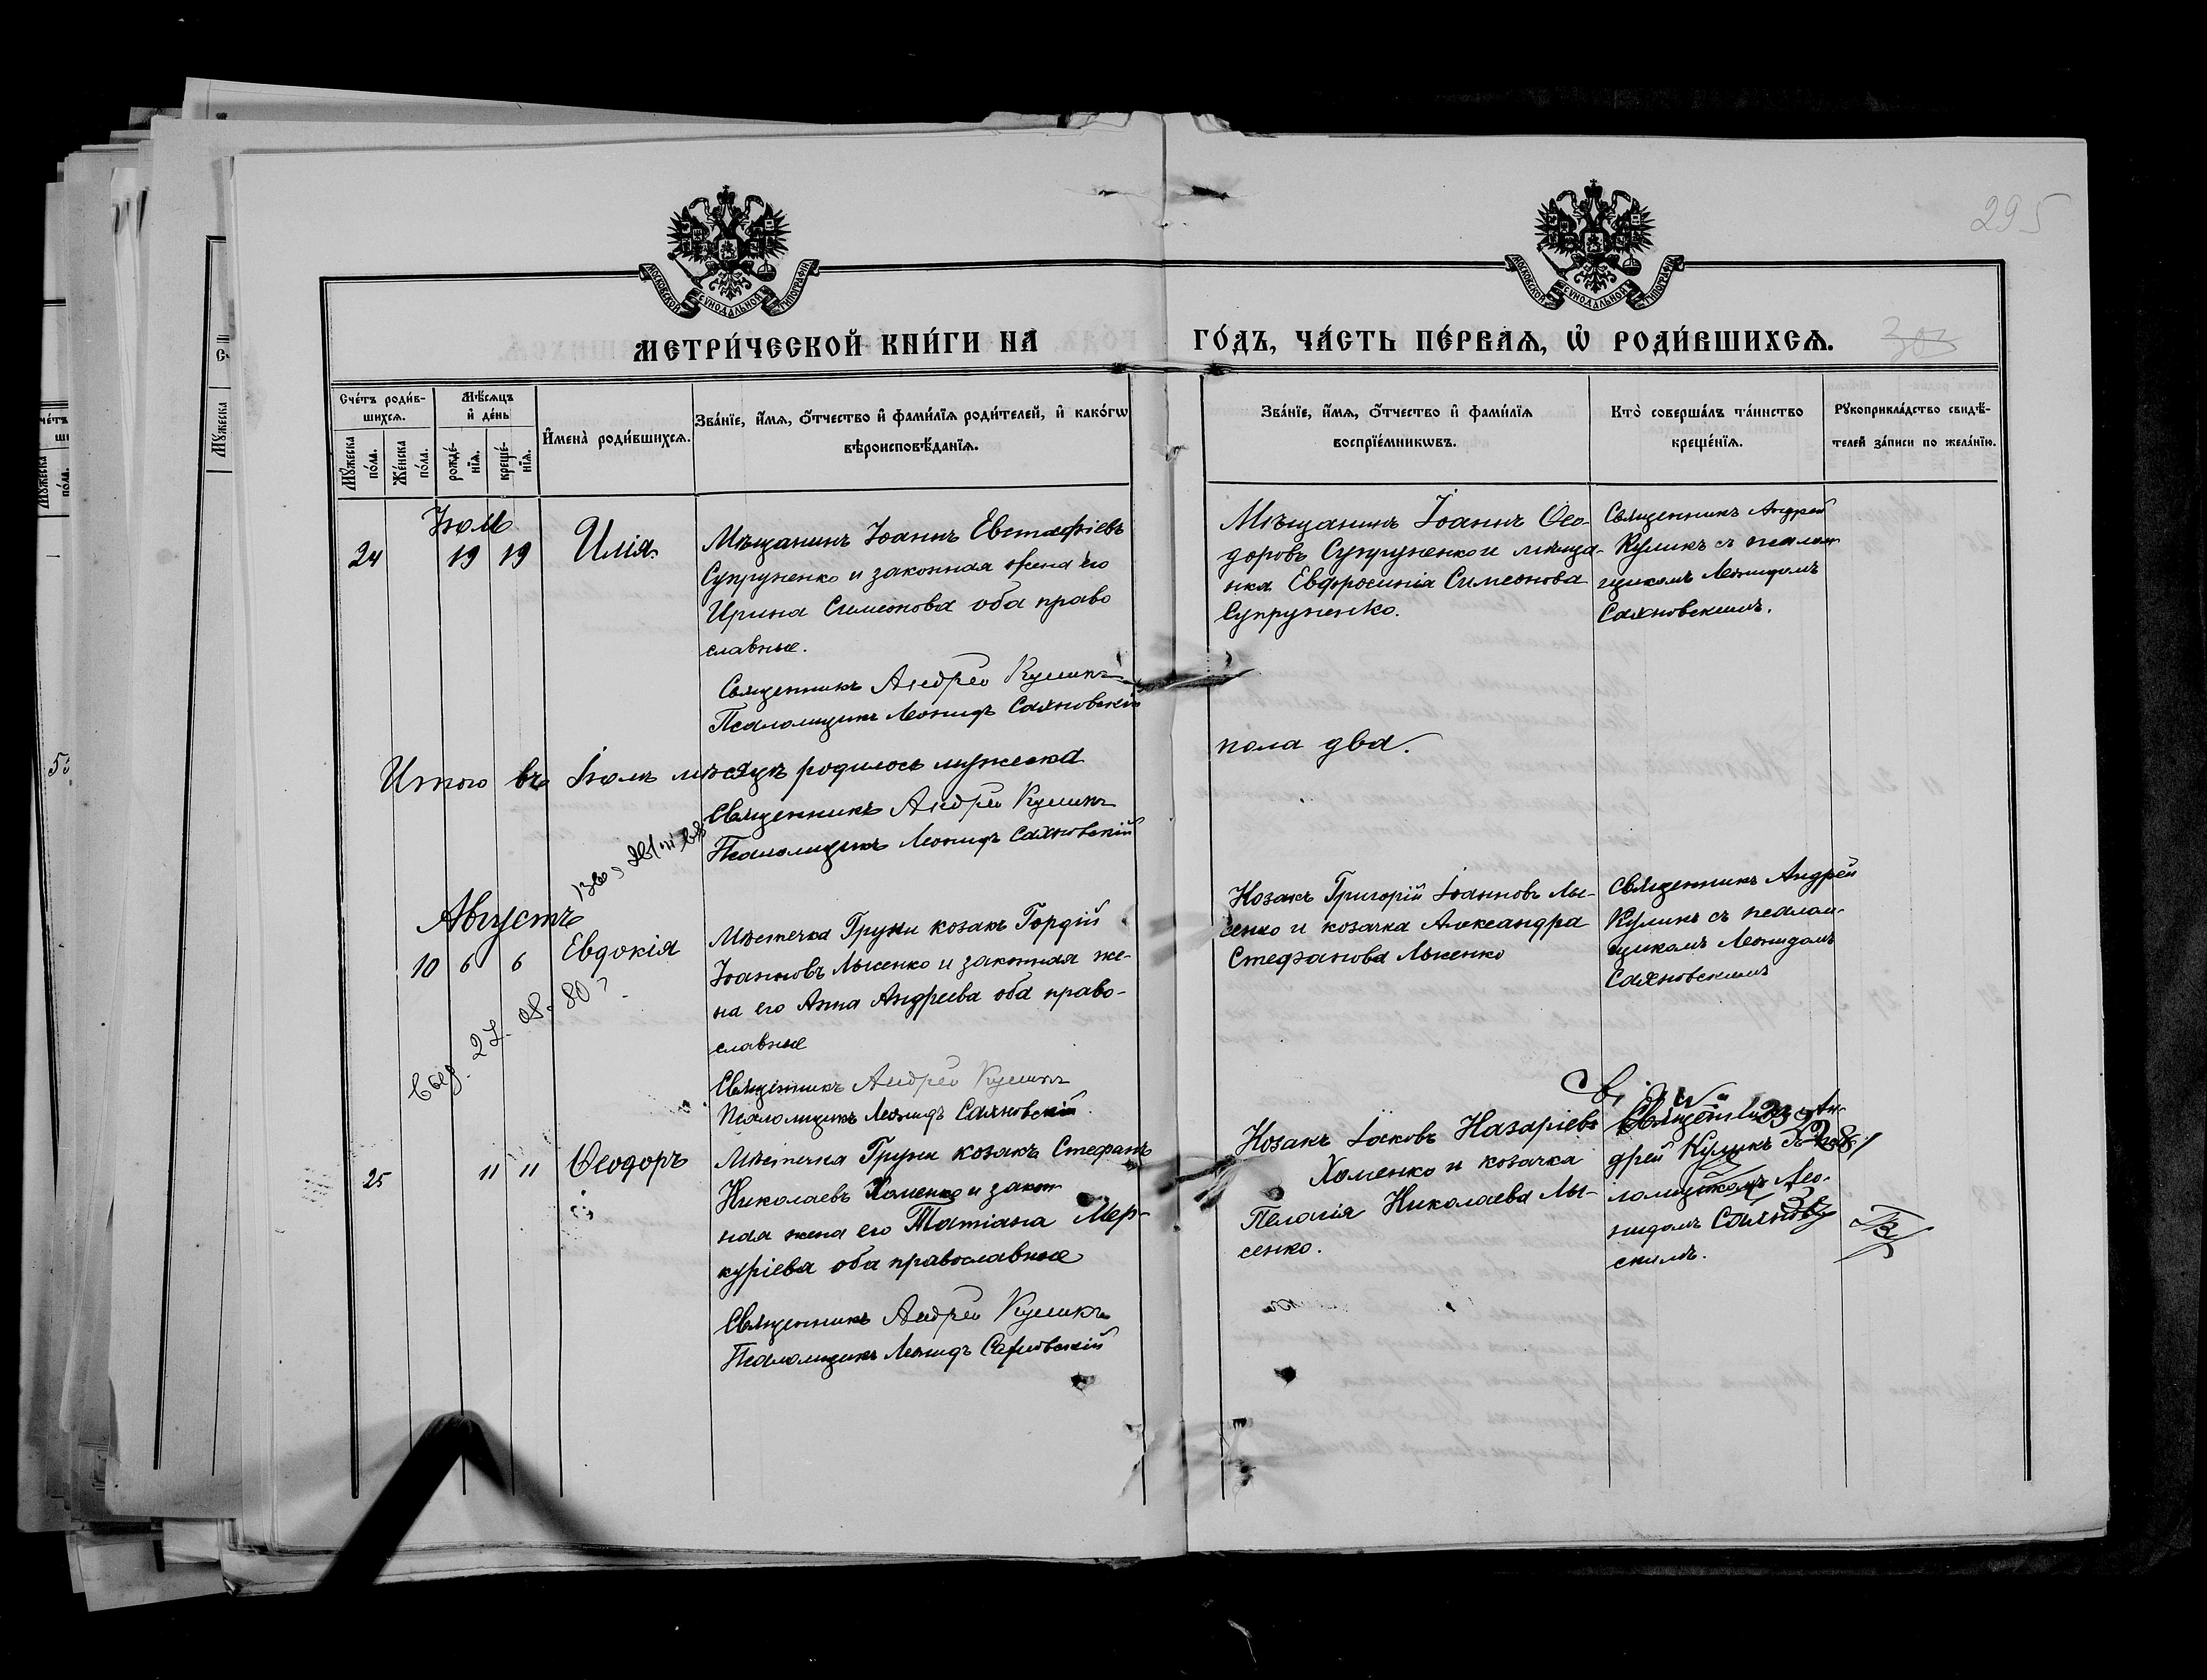 295
МОСКОВСКОЙ СѴНОДАЛЬНОЙ ТИПОГРАФІИ
МОСКОВСКОЙ СѴНОДАЛЬНОЙ ТИПОГРАФІИ
МЕТРИ́ЧЕСКОЙ КНИ́ГИ НА
ГО́ДЪ, ЧА́СТЬ ПЕ́РВАѦ, Ѡ҆ РОДИ́ВШИХСѦ.
303
Сче́тъ роди́в-
шихсѧ.
Мѣ́сѧцъ
и҆ де́нь
Мꙋ́жеска
по́ла.
Же́нска
по́ла.
рожде́-
нїѧ.
креще́-
нїѧ.
И҆мена̀ роди́вшихсѧ.
Зва́нїе, и҆́мѧ, ѻ҆́тчество и҆ фами́лїѧ роди́телей, и҆ како́гѡ
вѣроисповѣ́данїѧ.
Зва́нїе, и҆́мѧ, ѻ҆́тчество и҆ фами́лїѧ
воспрїе́мникѡвъ.
Кто̀ соверша́лъ та́инство
креще́нїѧ.
Рꙋкоприкла́дство свидѣ́-
телей за́писи по жела́нїю.
Іюль
24 19 19 Илія
Мѣщанинъ Іоаннъ Евстафіевъ
Супруненко и законная жена его
Ирина Симеонова оба право
славные.
Священникъ Андрей Куликъ
Псаломщикъ Леонидъ Саяновскій
Мѣщанинъ Іоаннъ Ѳео-
доровъ Супруненко и мѣща-
нка Евфросинія Симеонова
Супруненко.
Священникъ Андрей
Куликъ съ псалом
щикомъ Леонидомъ
Саяновскимъ.
Итого въ Іюлѣ мѣсяцѣ родилось мужеска
пола два.
Священникъ Андрей Куликъ
Псаломщикъ Леонидъ Саяновскій
Августъ
10 6 6 Евдокія
Мѣстечка Груни козакъ Гордій
Іоанновъ Лысенко и законная же-
на его Анна Андреева оба право-
славные
Священникъ Андрей Куликъ
Псаломщикъ Леонидъ Саяновскій
Козакъ Григорій Іоанновъ Лы-
сенко и козачка Александра
Стефанова Лысенко
Священникъ Андрей
Куликъ съ псалом-
щикомъ Леонидомъ
Саяновскимъ
25 11 11 Ѳеодоръ
Мѣстечка Груни козакъ Стефанъ
Николаевъ Хоменко и закон
ная жена его Татіана Мер-
куріева оба православные
Священникъ Андрей Куликъ
Псаломщикъ Леонидъ Саяновскій
Козакъ Іаковъ Назаріевъ
Хоменко и козачка
Пелагія Николаева Лы-
сенко.
Священникъ Ан-
дрей Куликъ съ пса-
ломщикомъ Лео-
нидомъ Саяновъ
скимъ.